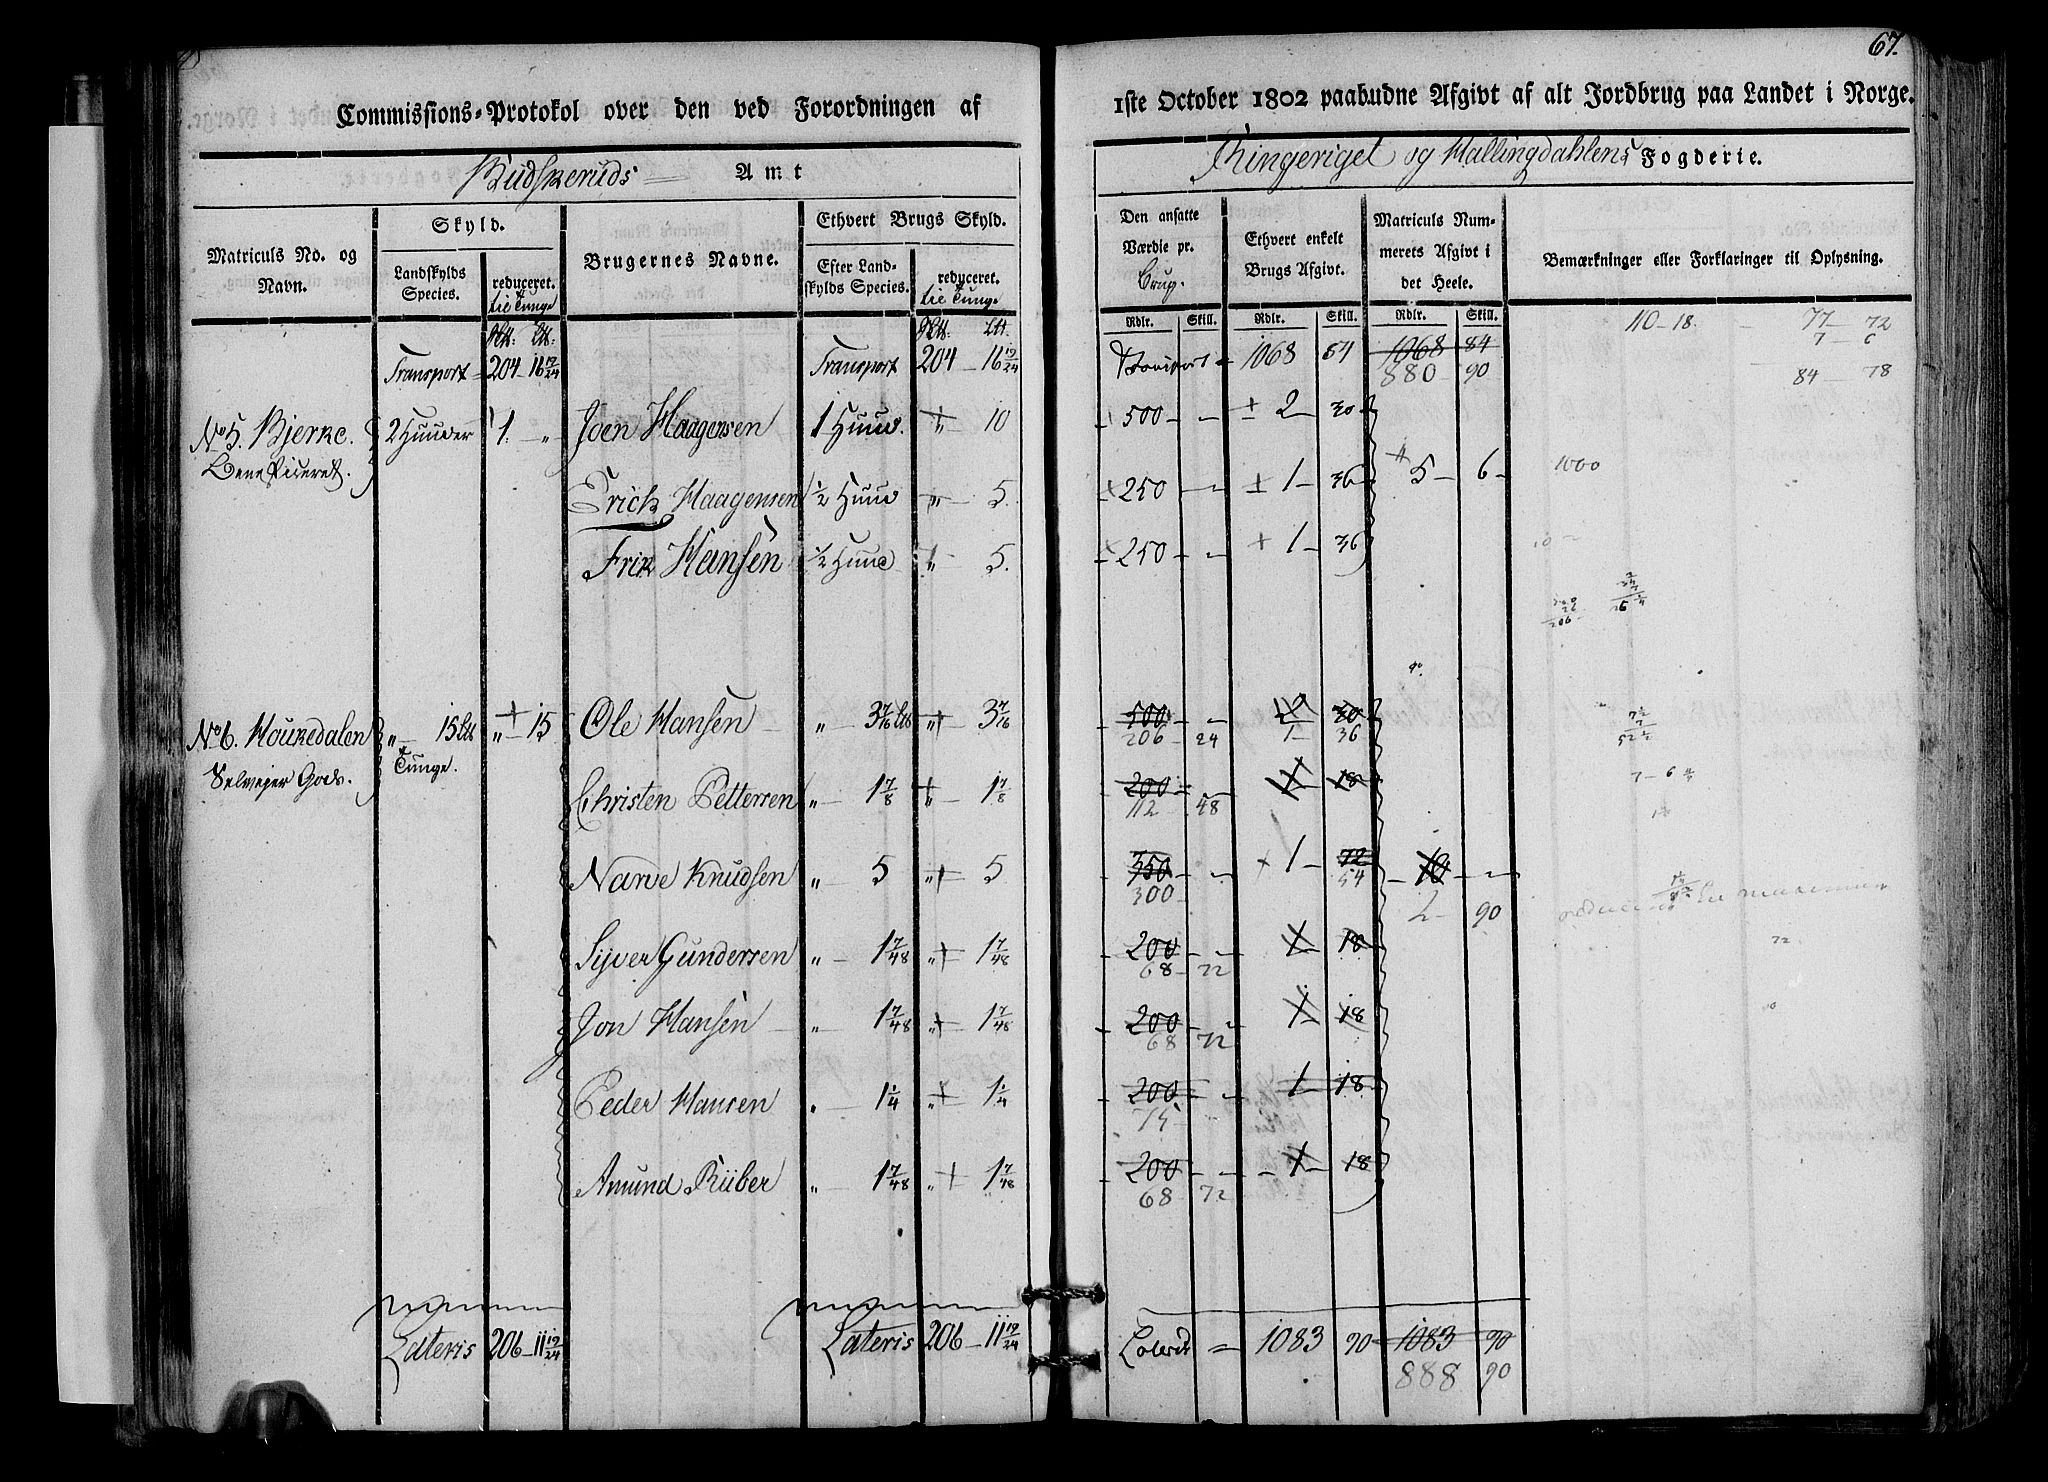 67.
Commissions-Protokol over den ved Forordningen af 1ste October 1802 paabudne Afgivt af alt Jordbrug paa Landet i Norge.
Budskeruds Amt
Ringeriget og Hallingdahlens Fogderie.
Matriculs No. og Navn.
Skyld.
Landskylds Species.
reduceret. til Tunge
Brugernes Navne.
Ethvert Brugs Skyld.
Efter Landskylds Species.
reduceret. til Tunge
Den ansatte Værdie pr. Brug.
Ethvert enkelt Brugs Afgivt.
Matriculs Nummerets Afgivt i det Heele.
Bemærkninger eller Forklaringer til Oplysning.
Rdlr. Skill. Rdlr. Skill. Rdlr. Skill.
Transport 204 - 16 19/24 Transport 204 - 16 19/24 Transport 1068 84 1068 84
880 - 90
110 - 18. 77 - 72
7 - 6
84 - 78
No 5. Bjerke. 2 Huuder 1. - " Joen Haagensen 1 Huud. " 10 500 - - 2 - 30
Beneficeret.
Erich Haagensen 1/2 Huud " 5. 250 - 1 - 36 5 - 6 - 1000
Frik Hansen 1/2 Huud " 5. 250 - - 1 - 36
No 6. Houkedalen " 15 Lb " 15 Ole Hansen " 3 7/16 Lb " 3 7/16 500 - - 30
Selvejer Gods. Tunge. 206 - 24 1 - 36
Christen Pettersen " 1 7/8 " 1 7/8 200 - - 1 - 18
112 48
Narve Knudsen " 5 " 5 350 - - 1 - 72 - 10 - -
300 - 54 2 - 90
Sijver Gundersen " 1 7/48 " 1 7/48 200 - - 1 18
68 - 72
Jon Hansen " 1 7/48 " 1 7/48 200 - - 1 - 18
68 72
Peder Hansen " 1 1/4 " 1 1/4 200 - - 1 - 18
75 -
Amund Riiber " 1 7/48 " 1 7/48 200 - - 1 - 18
68 - 72
Lateris 206 - 11 19/24 Lateris 206 - 11 19/24 Lateris 1083 90 1083 90
888 90